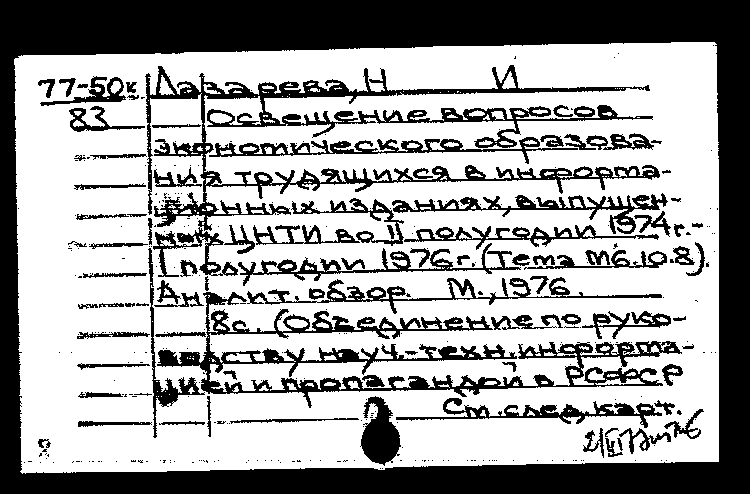 77-50к Лазарева, Н И
83 Освещение вопросов
экономического образова-
ния трудящихся в информа-
ционных изданиях, выпущен-
ных ЦНТИ во II полугодии 1974г.-
I полугодии 1976г. (Тема М6.10.8).
Аналит. обзор. М., 1976.
8с. (Объединение по руко-
водству науч.-техн. информа-
цией и пропагандой в РСФСР
См. след. карт.